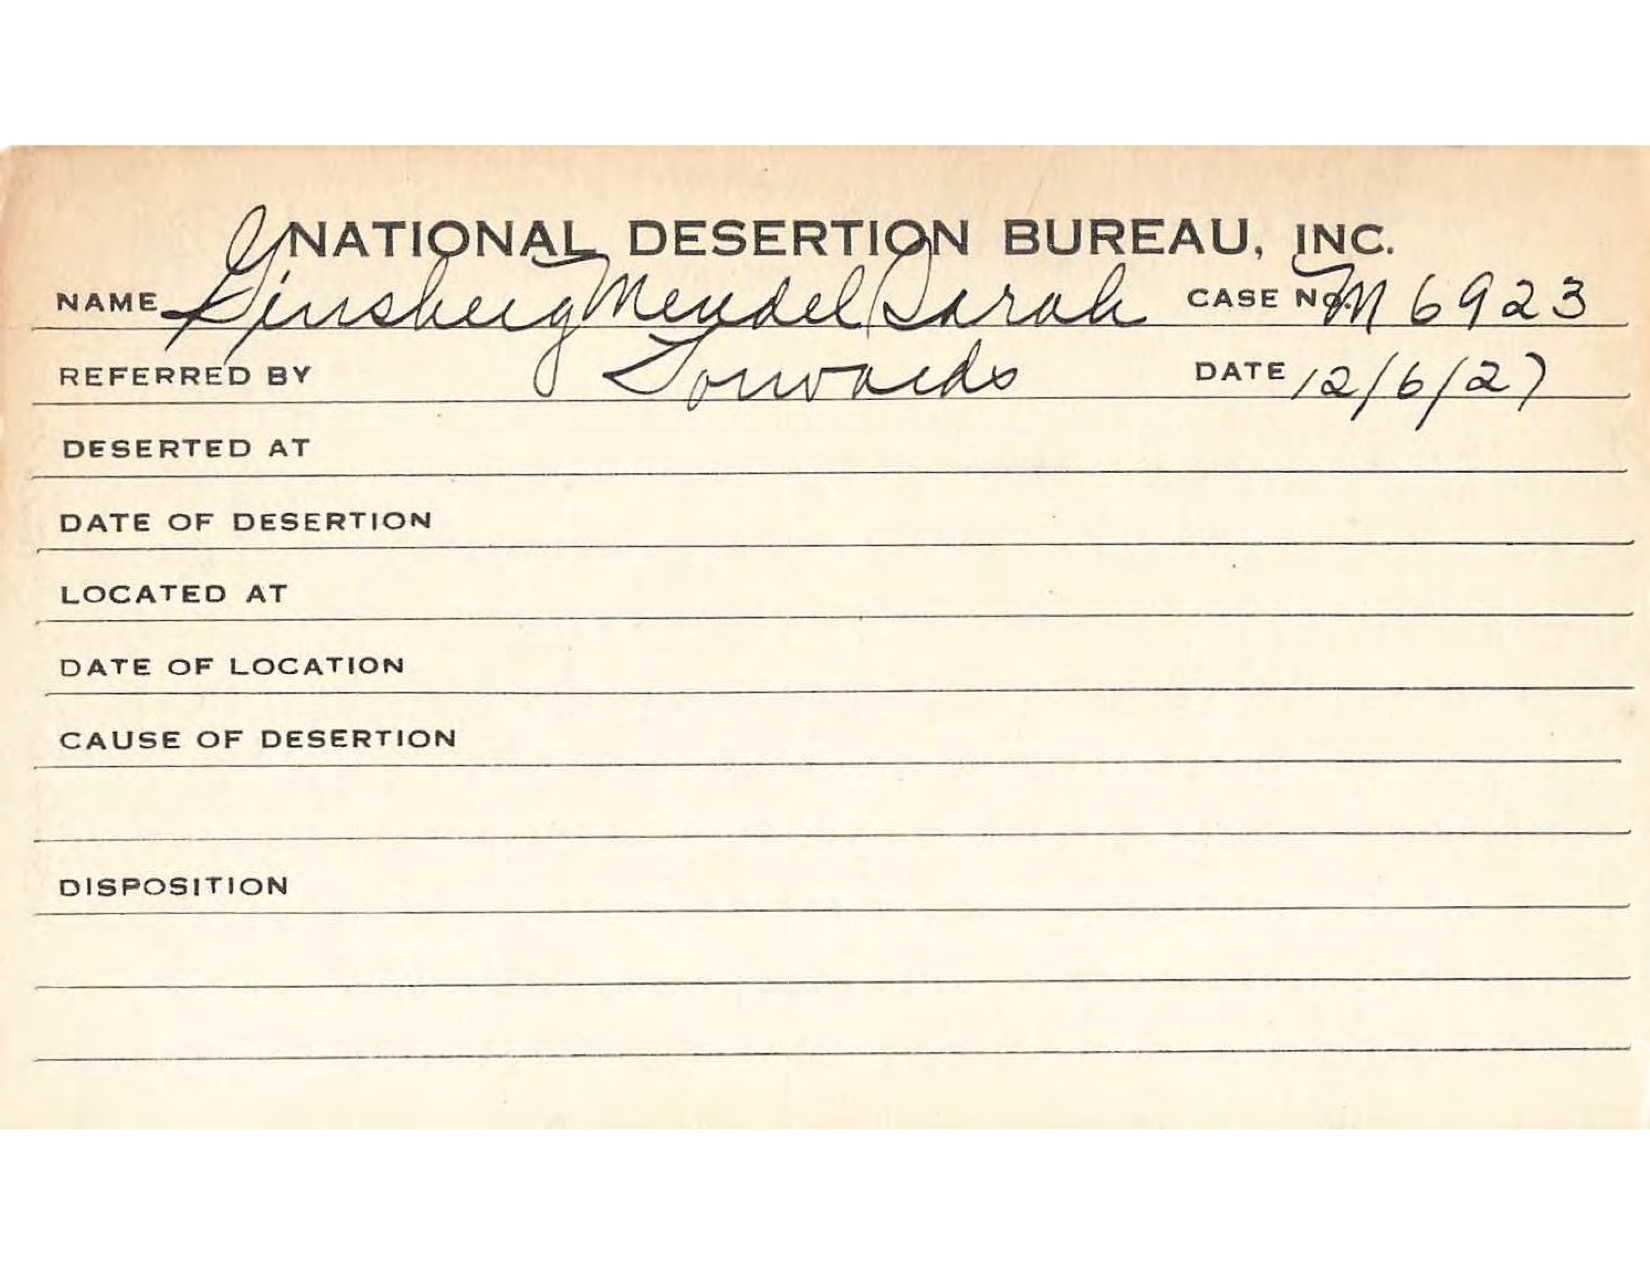 NATIONAL DESERTION BUREAU, INC.
NAME Ginsberg Mendel (Sarah CASE NO. M 6923
REFERRED BY Forwards DATE 12/6/27
DESERTED AT
DATE OF DESERTION
LOCATED AT
DATE OF LOCATION
CAUSE OF DESERTION
DISPOSITION